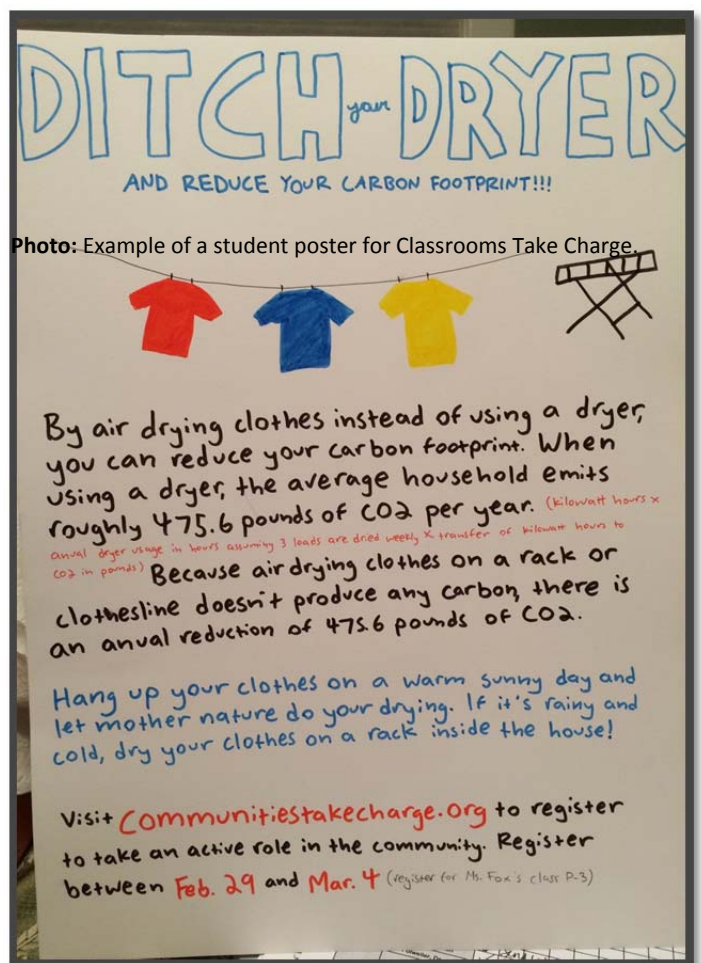 DITCH your DRYER
AND REDUCE YOUR CARBON FOOTPRINT!!!
Photo: Example of a student poster for Classrooms Take Charge.
By air drying clothes instead of using a dryer,
you can reduce your carbon footprint. When
using a dryer, the average household emits
roughly 475.6 pounds of CO2 per year. (kilowatt hours x
anual dryer usage in hours assuming 3 loads are dried weekly x transfer of kilowatt hours to
CO2 in pounds) Because air drying clothes on a rack or
clothesline doesn't produce any carbon, there is
an anual reduction of 475.6 pounds of CO2.
Hang up your clothes on a warm sunny day and
let mother nature do your drying. If it's rainy and
cold, dry your clothes on a rack inside the house!
Visit Communitiestakecharge.org to register
to take an active role in the community. Register
between Feb. 29 and Mar. 4 (register for Ms. Fox's class P-3)